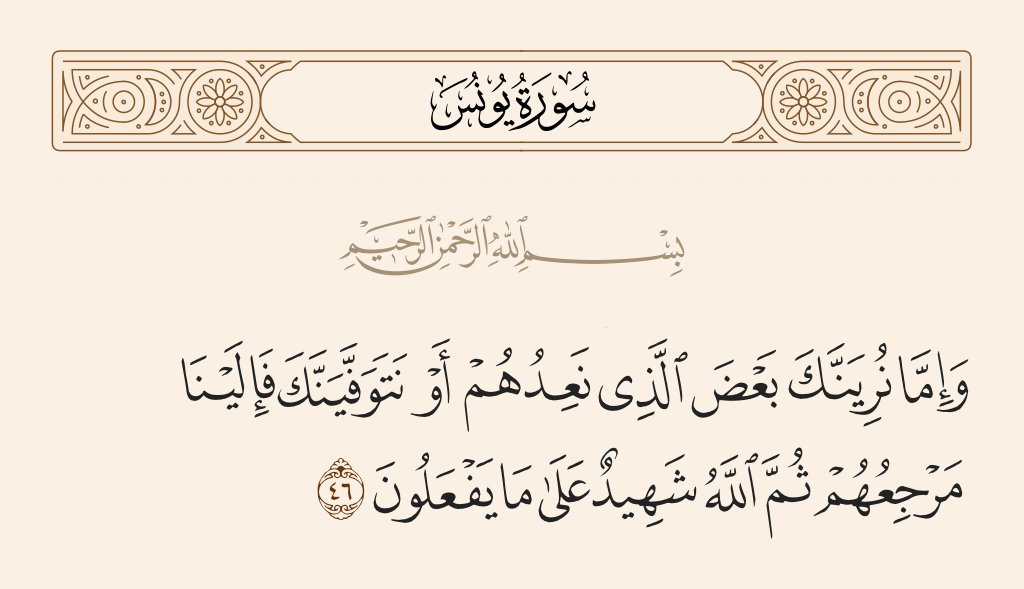 سُورَةُ يُونُسَ
بِسْمِ ٱللَّهِ ٱلرَّحْمَٰنِ ٱلرَّحِيمِ
وَإِمَّا نُرِيَنَّكَ بَعْضَ ٱلَّذِى نَعِدُهُمْ أَوْ نَتَوَفَّيَنَّكَ فَإِلَيْنَا
مَرْجِعُهُمْ ثُمَّ ٱللَّهُ شَهِيدٌ عَلَىٰ مَا يَفْعَلُونَ ٤٦